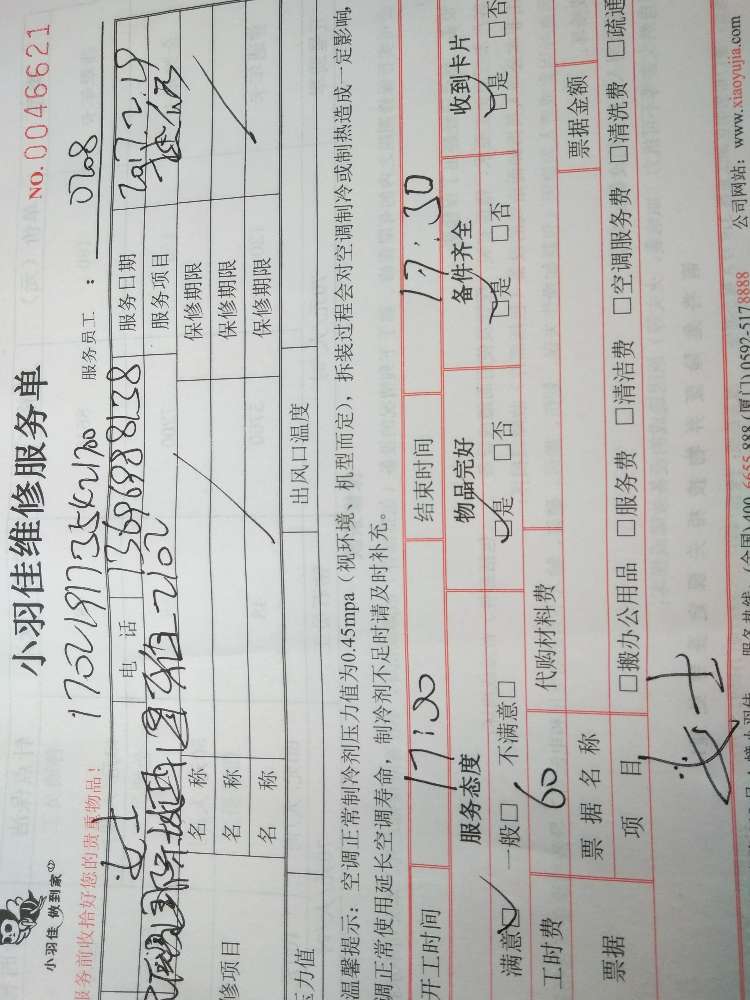 小羽佳 做到家
小羽佳维修服务单
NO.0046621
服务前收拾好您的贵重物品！
服务员工：0208
女士
电 话
13696988138
服务日期
2017.2.19
2102
服务项目
名 称
保修期限
名 称
保修期限
名 称
保修期限
修项目
压力值
出风口温度
温馨提示：空调正常制冷剂压力值为0.45mpa（视环境、机型而定），拆装过程会对空调制冷或制热造成一定影响，
调正常使用延长空调寿命，制冷剂不足时请及时补充。
开工时间
17:00
结束时间
17:30
服务态度
物品完好
备件齐全
收到卡片
满意□ 一般□ 不满意□
□是 □否
□是 □否
□是 □否
工时费
60
代购材料费
票据
票 据 名 称
票据金额
项 目
□搬办公用品 □服务费 □清洁费 □空调服务费 □清洗费 □疏通
女士
(全国) 400-6655-888 (厦门) 0592-5178888
公司网站：www.xiaoyujia.com